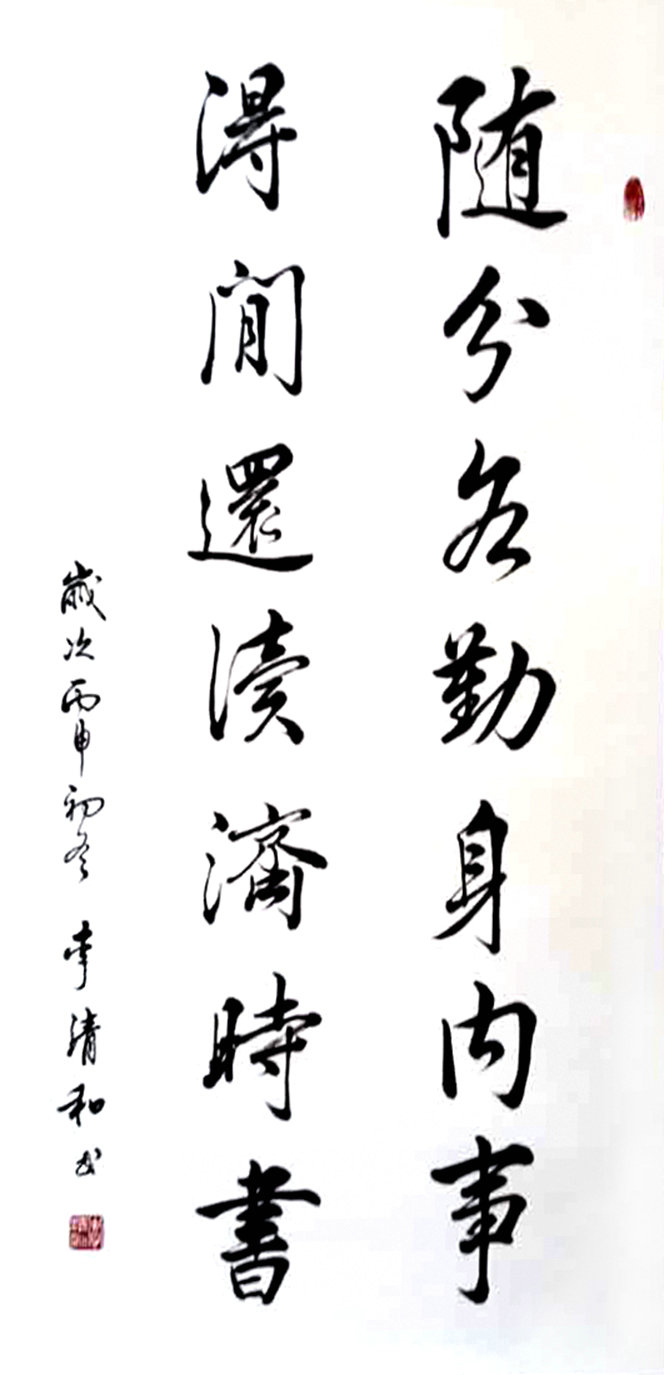 随分各勤身内事
得閒還讀濟時書
歲次丙申初冬 李清和书